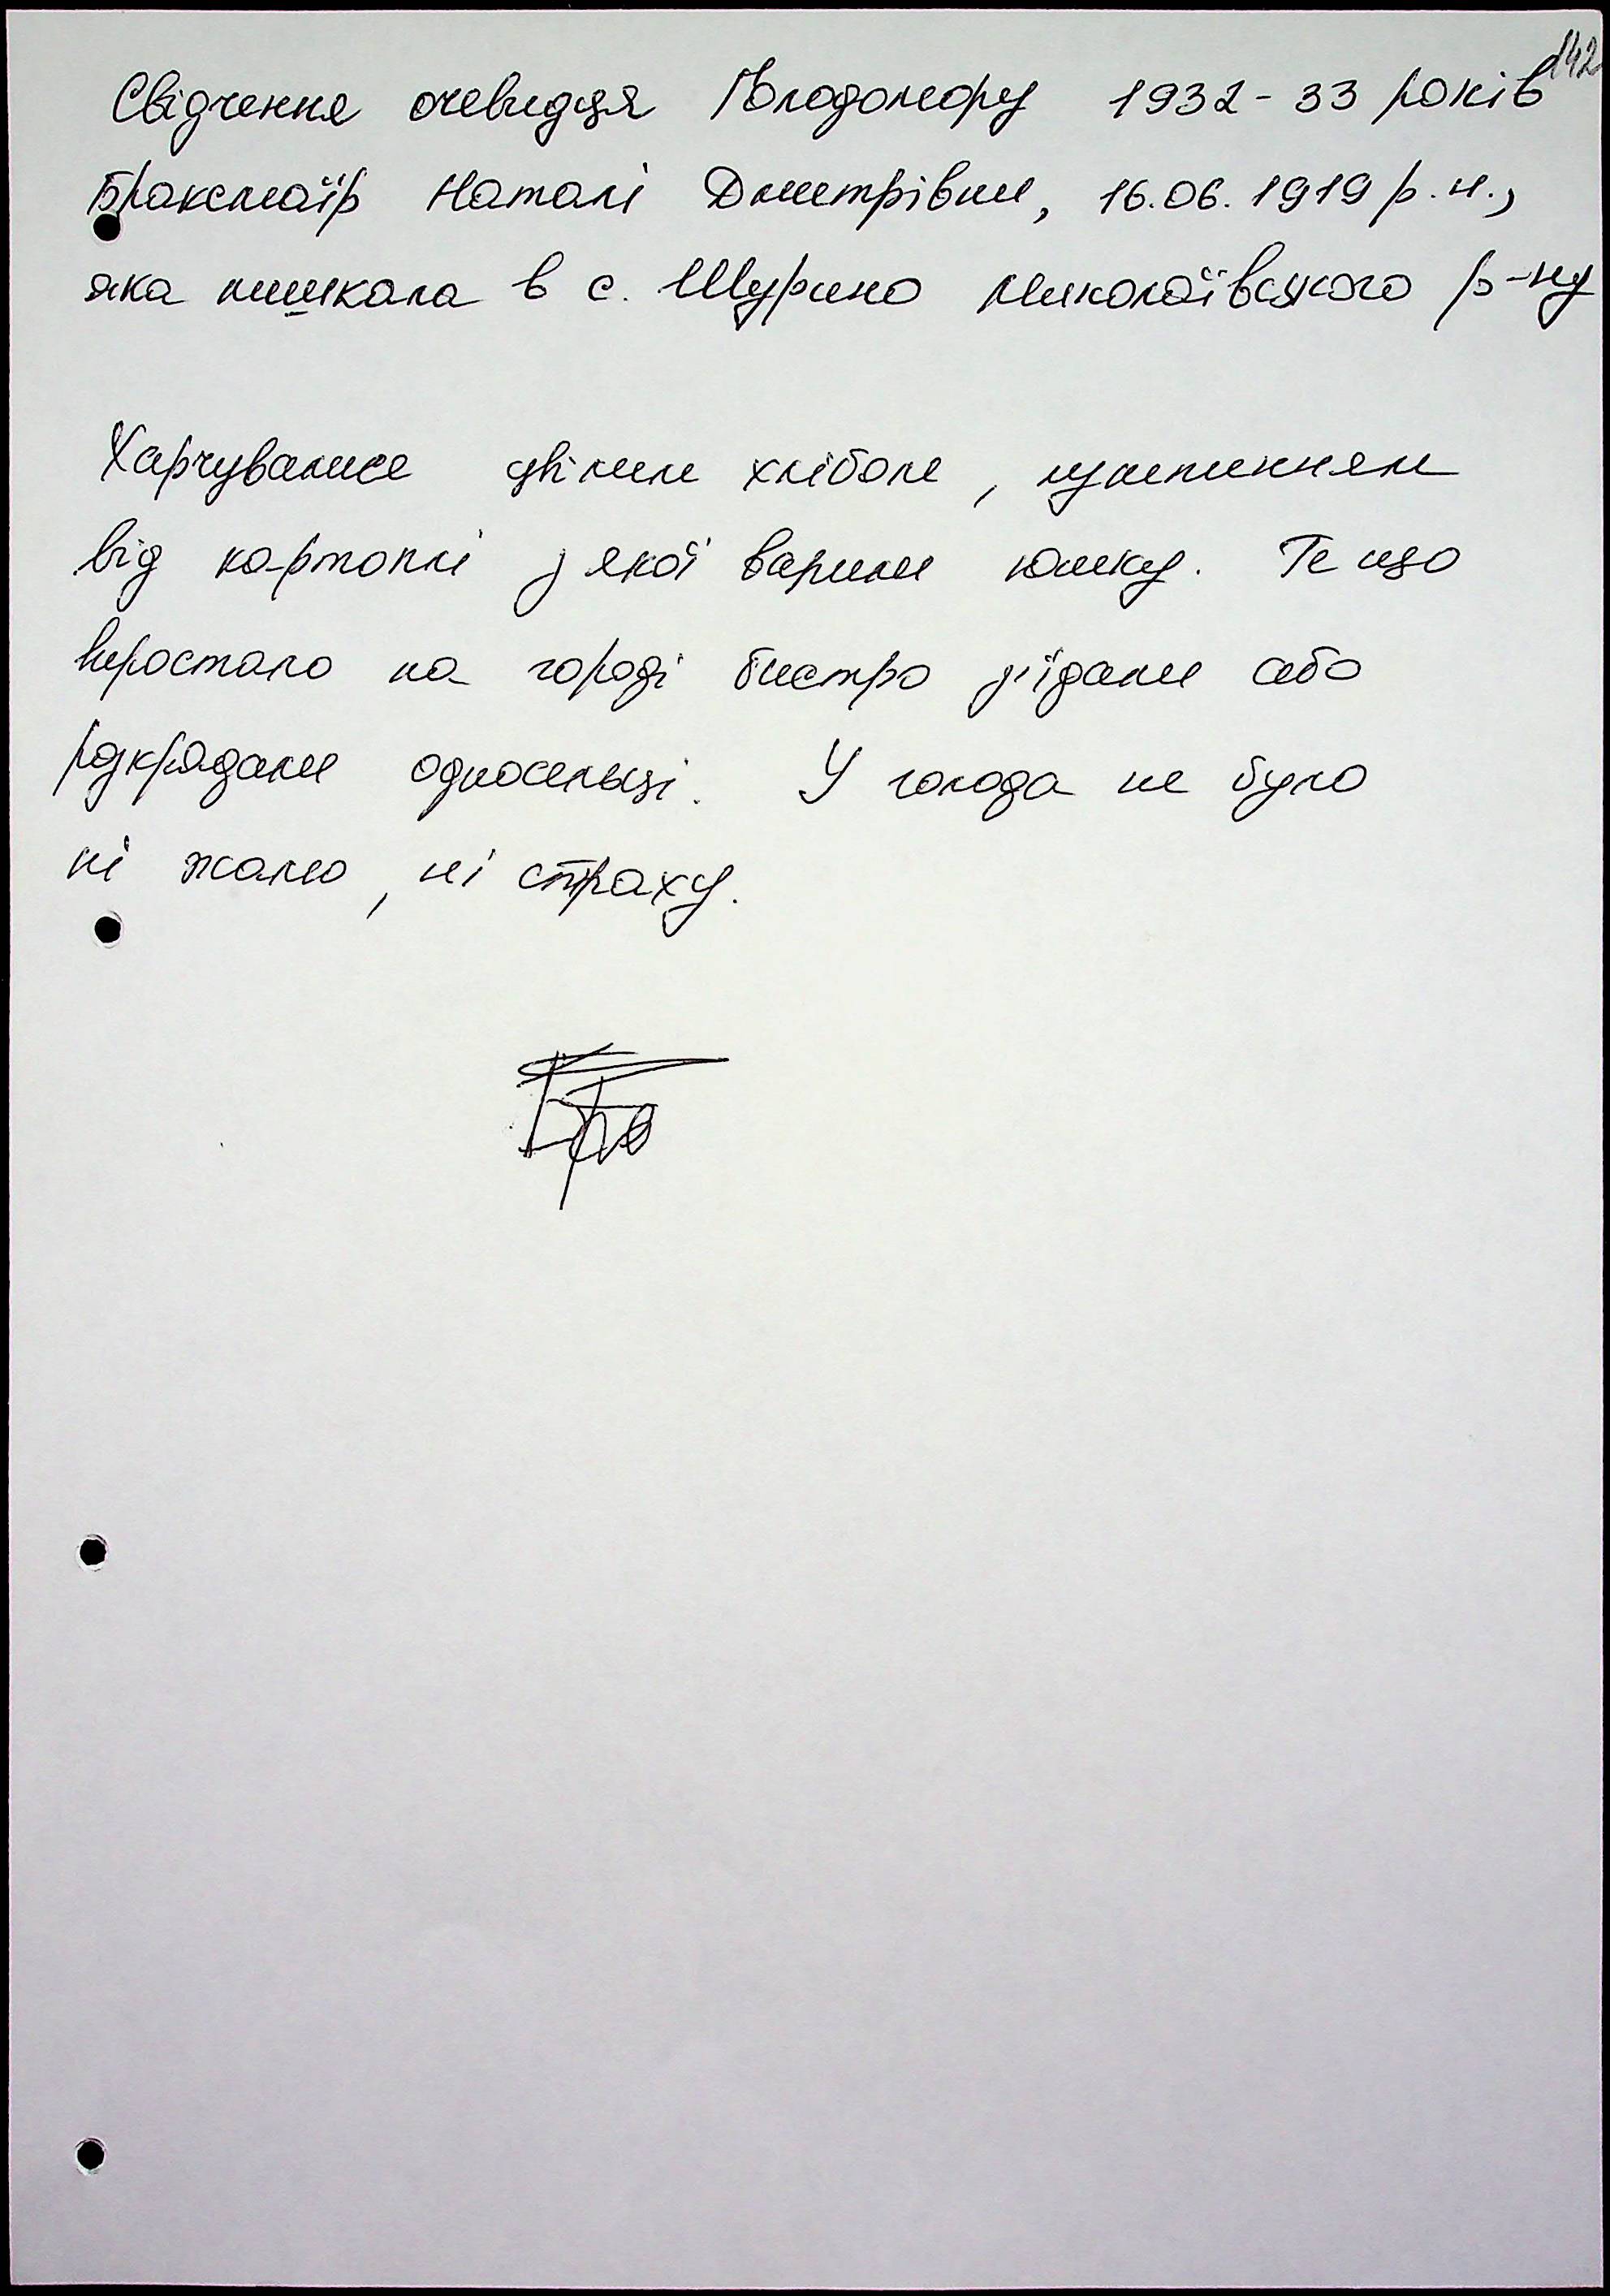 142
Свідчення очевидця Голодомору 1932-33 років
Браксмаїр Наталі Дмитрівни, 16.06.1919 р.н.,
яка мишкала в с. Шурино миколаївського р-ну
Харчувалися цвілим хлібом, лушпинням
від картоплі з якої варили юшку. Те що
виростало на городі бистро з'їдали або
розкрадали односельці. У голода не було
ні жалю, ні страху.